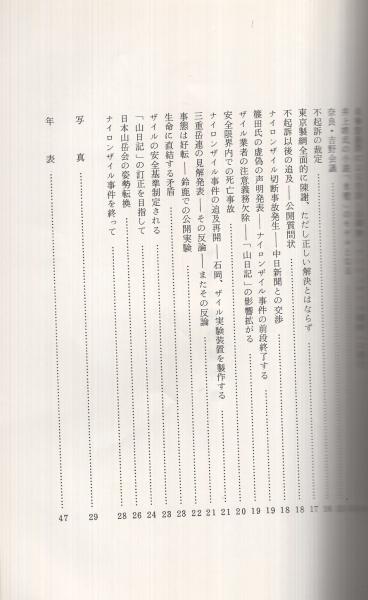 奈良・吉野会議
不起訴の裁定 17
東京製綱全面的に陳謝、ただし正しい解決とはならず 18
不起訴以後の追及――公開質問状 18
ナイロンザイル切断事故発生――中日新聞との交渉 19
篠田氏の虚偽の声明発表――ナイロンザイル事件の前段終了する 19
ザイル業者の注意義務欠除――「山日記」の影響拡がる 20
安全限界内での死亡事故 21
ナイロンザイル事件の追及再開――石岡、ザイル実験装置を製作する 21
三重岳連の見解発表――その反論――またその反論 22
事態は好転――鈴鹿での公開実験 23
生命に直結する矛盾 23
ザイルの安全基準制定される 24
「山日記」の訂正を目指して 26
日本山岳会の姿勢転換 28
ナイロンザイル事件を終って
写真 29
年表 47